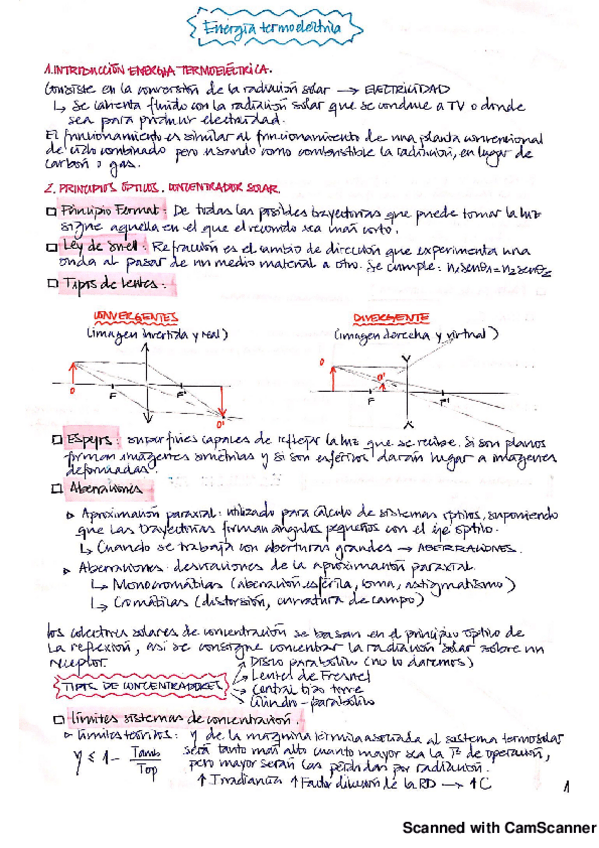 Energía termoeléctrica
1. INTRODUCCIÓN ENERGIA TERMOELÉCTRICA.
Consiste en la conversión de la radiación solar → ELECTRICIDAD
↳ Se calienta fluido con la radiación solar que se conduce a TV o donde
sea para producir electricidad.
El funcionamiento es similar al funcionamiento de una planta convencional
de ciclo combinado pero usando como combustible la radiación, en lugar de
carbón o gas.
2. PRINCIPIOS ÓPTICOS. CONCENTRADOR SOLAR.
□ Principio Fermat: De todas las posibles trayectorias que puede tomar la luz
sigue aquella en el que el recorrido sea más corto.
□ Ley de Snell: Refracción es el cambio de dirección que experimenta una
onda al pasar de un medio material a otro. Se cumple: n₁senθ₁=n₂senθ₂
□ Tipos de lentes:
CONVERGENTES DIVERGENTE
(imagen invertida y real) (imagen derecha y virtual)
O F F' O'
O O' F F'
□ Espejos: superficies capaces de reflejar la luz que se recibe. Si son planos
forman imágenes simétricas y si son esféricos darán lugar a imágenes
deformadas.
□ Aberraciones
▹ Aproximación paraxial: utilizado para cálculo de sistemas ópticos, suponiendo
que las trayectorias forman ángulos pequeños con el eje óptico.
↳ Cuando se trabaja con aberturas grandes → ABERRACIONES.
▹ Aberraciones: desviaciones de la aproximación paraxial.
↳ Monocromáticas (aberación esférica, coma, astigmatismo)
↳ Cromáticas (distorsión, curvatura de campo)
Los colectores solares de concentración se basan en el principio óptico de
la reflexión, así se consigue concentrar la radiación solar sobre un
receptor.
TIPOS DE CONCENTRADORES
Disco parabólico (no lo daremos)
Lentes de Fresnel
Central tipo torre
Cilindro-parabólico
□ Límites sistemas de concentración.
▹ Límites teóricos: η de la máquina térmica asociada al sistema termosolar
será tanto más alto cuanto mayor sea la Tª de operación,
η ≤ 1 - Tamb / Top
pero mayor serán las pérdidas por radiación.
↑ Irradiancia ↑ Factor dilución de la RD → ↑C
1
Scanned with CamScanner